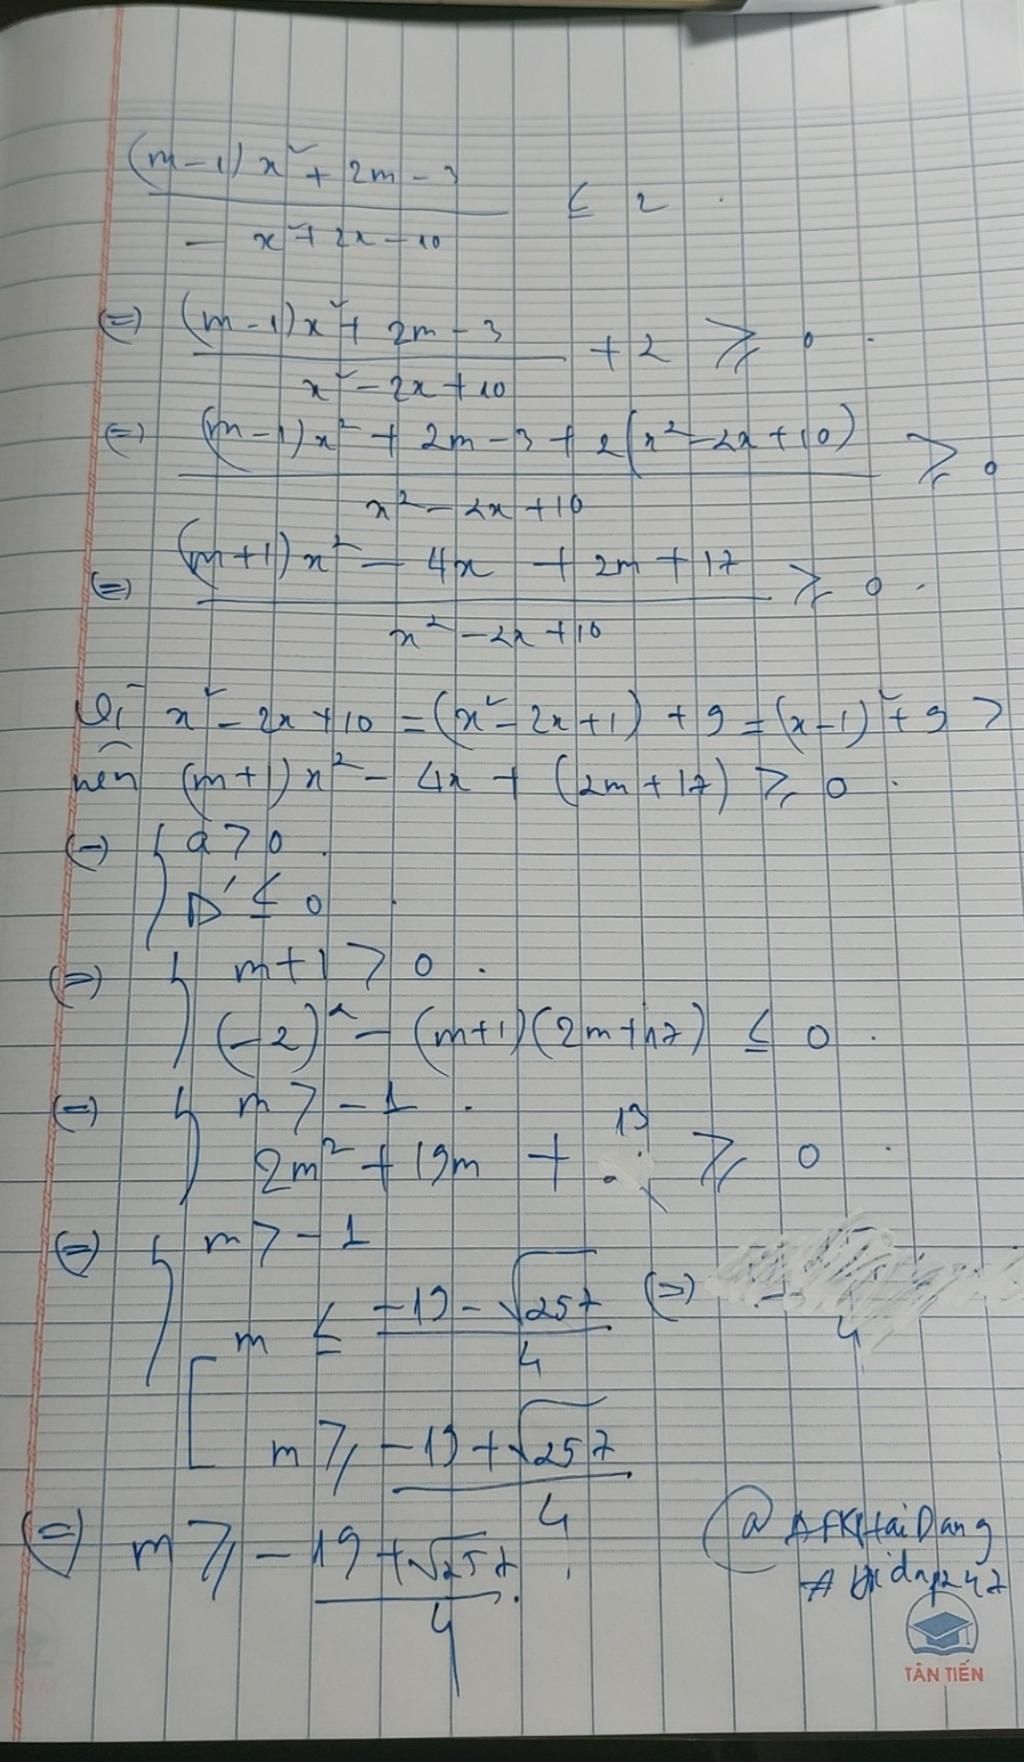 (m-1)x² + 2m - 3 / -x² + 2x - 10 ≤ 2.
(=) (m-1)x² + 2m - 3 / x² - 2x + 10 + 2 ≥ 0.
(=) (m-1)x² + 2m - 3 + 2(x² - 2x + 10) / x² - 2x + 10 ≥ 0
(=) (m+1)x² - 4x + 2m + 17 / x² - 2x + 10 ≥ 0.
Vì x² - 2x + 10 = (x² - 2x + 1) + 9 = (x-1)² + 9 >
nên (m+1)x² - 4x + (2m + 17) ≥ 0.
(=) { a > 0.
Δ' ≤ 0
(=) { m + 1 > 0.
(-2)² - (m+1)(2m+17) ≤ 0.
(=) { m > -1.
2m² + 19m + 13 ≥ 0
(=) { m > -1
[ m ≤ -19 - √257 / 4 (=) 4
m ≥ -19 + √257 / 4
(=) m ≥ -19 + √257 / 4.
@AFKHaiDang
#Hoidap247
TÂN TIẾN